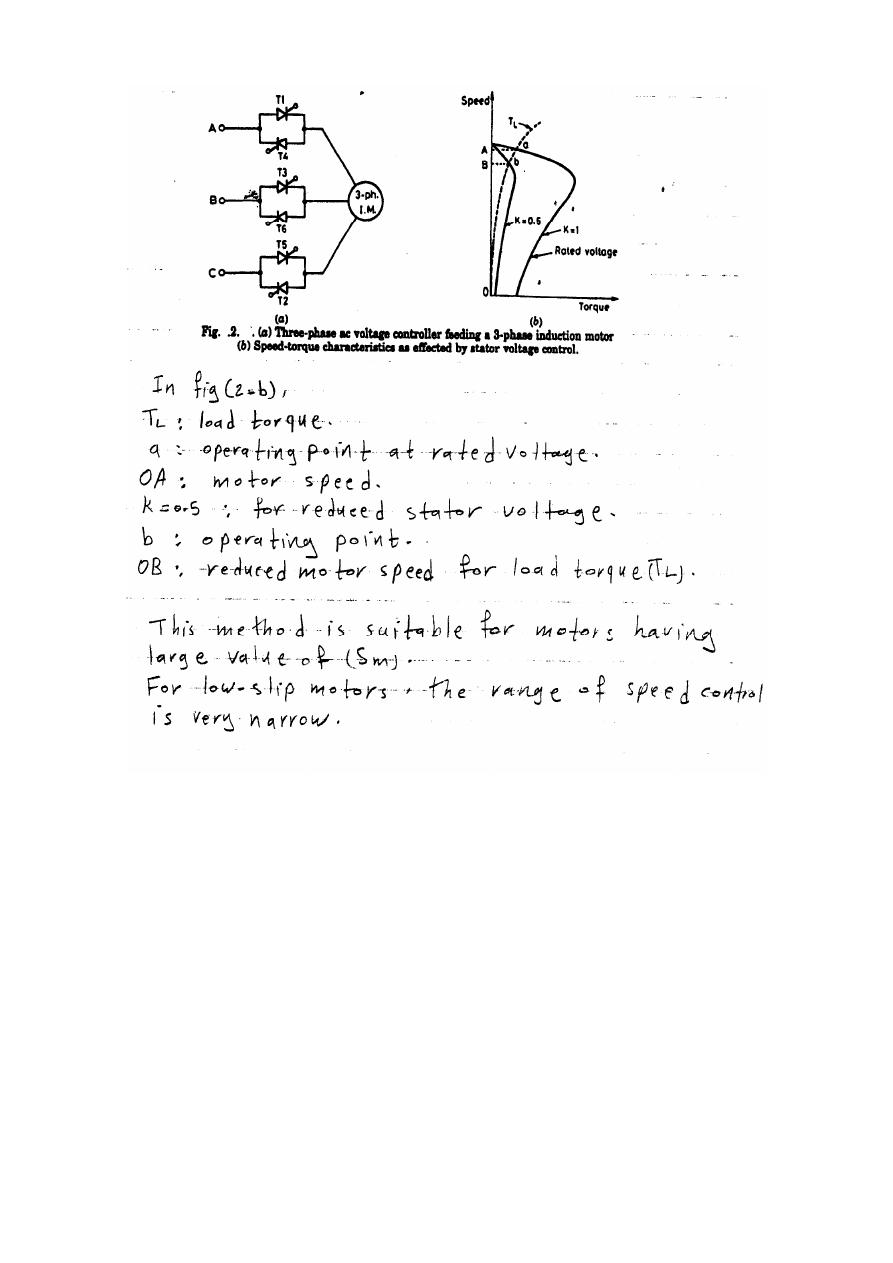 T1
A
T4
T3
B
T6
T5
C
T2
3-ph.
I.M.
(a)
Speed
TL
a
A
B
b
K=0.5
K=1
Rated voltage
0
Torque
(b)
Fig. .2. . (a) Three-phase ac voltage controller feeding a 3-phase induction motor
(b) Speed-torque characteristics as effected by stator voltage control.
In fig (2-b),
TL : load torque.
a : operating point at rated voltage.
OA : motor speed.
K=0.5 : for reduced stator voltage.
b : operating point.
OB : reduced motor speed for load torque (TL).
This method is suitable for motors having
large value of (Sm).
For low-slip motors, the range of speed control
is very narrow.